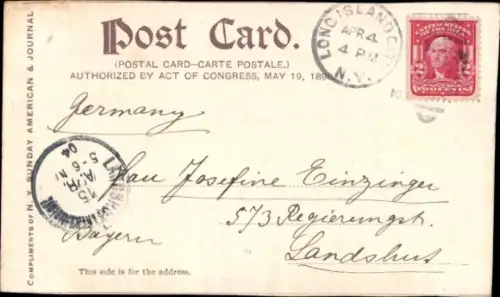 Post Card.
(POSTAL CARD—CARTE POSTALE.)
AUTHORIZED BY ACT OF CONGRESS, MAY 19, 1898.
LONG ISLAND CITY
APR 4
4 PM
N.Y.
UNITED STATES OF AMERICA
POSTAGE
2 2
TWO CENTS
COMPLIMENTS OF N. Y. SUNDAY AMERICAN & JOURNAL
Germany
15
APR.
5-6 N
04
Frau Josefine Einzinger
573 Regierungst.
Bayern
Landshut
This side is for the address.